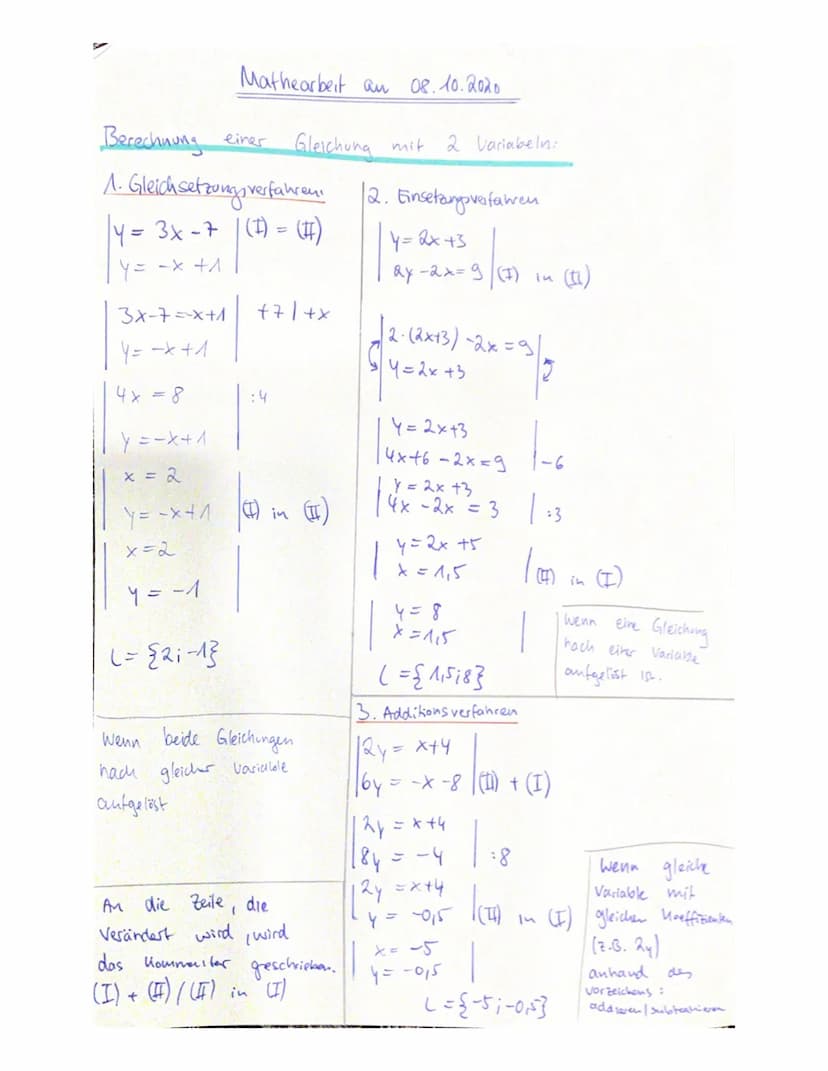 Mathearbeit am 08.10.2020
Berechnung einer Gleichung mit 2 Variabeln:
1. Gleichsetzungsverfahren:
y = 3x - 7 | (I) = (II)
y = -x + 1
3x-7 = -x+1 | +7 | +x
y = -x + 1
4x = 8 | :4
y = -x + 1
x = 2
y = -x + 1 | (I) in (II)
x = 2
y = -1
L = {2; -1}
Wenn beide Gleichungen
nach gleicher Variable
aufgelöst
An die Zeile, die
verändert wird, wird
das Kommentar geschrieben.
(I) + (II) / (II) in (I)
2. Einsetzungsverfahren
y = 2x + 3
2y - 2x = 9 | (I) in (II)
2·(2x+3) - 2x = 9
y = 2x + 3
y = 2x + 3
4x + 6 - 2x = 9 | -6
y = 2x + 3
4x - 2x = 3 | :3
y = 2x + 5
x = 1,5 | (II) in (I)
y = 8
x = 1,5
L = {1,5; 8}
Wenn eine Gleichung
nach einer Variable
aufgelöst ist.
3. Additionsverfahren
2y = x + 4
6y = -x - 8 | (II) + (I)
2y = x + 4
8y = -4 | :8
2y = x + 4
y = -0,5 | (II) in (I)
x = -5
y = -0,5
L = {-5; -0,5}
Wenn gleiche
Variable mit
gleichen Koeffizienten
(z.B. 2y)
anhand des
Vorzeichens:
addieren/subtrahieren